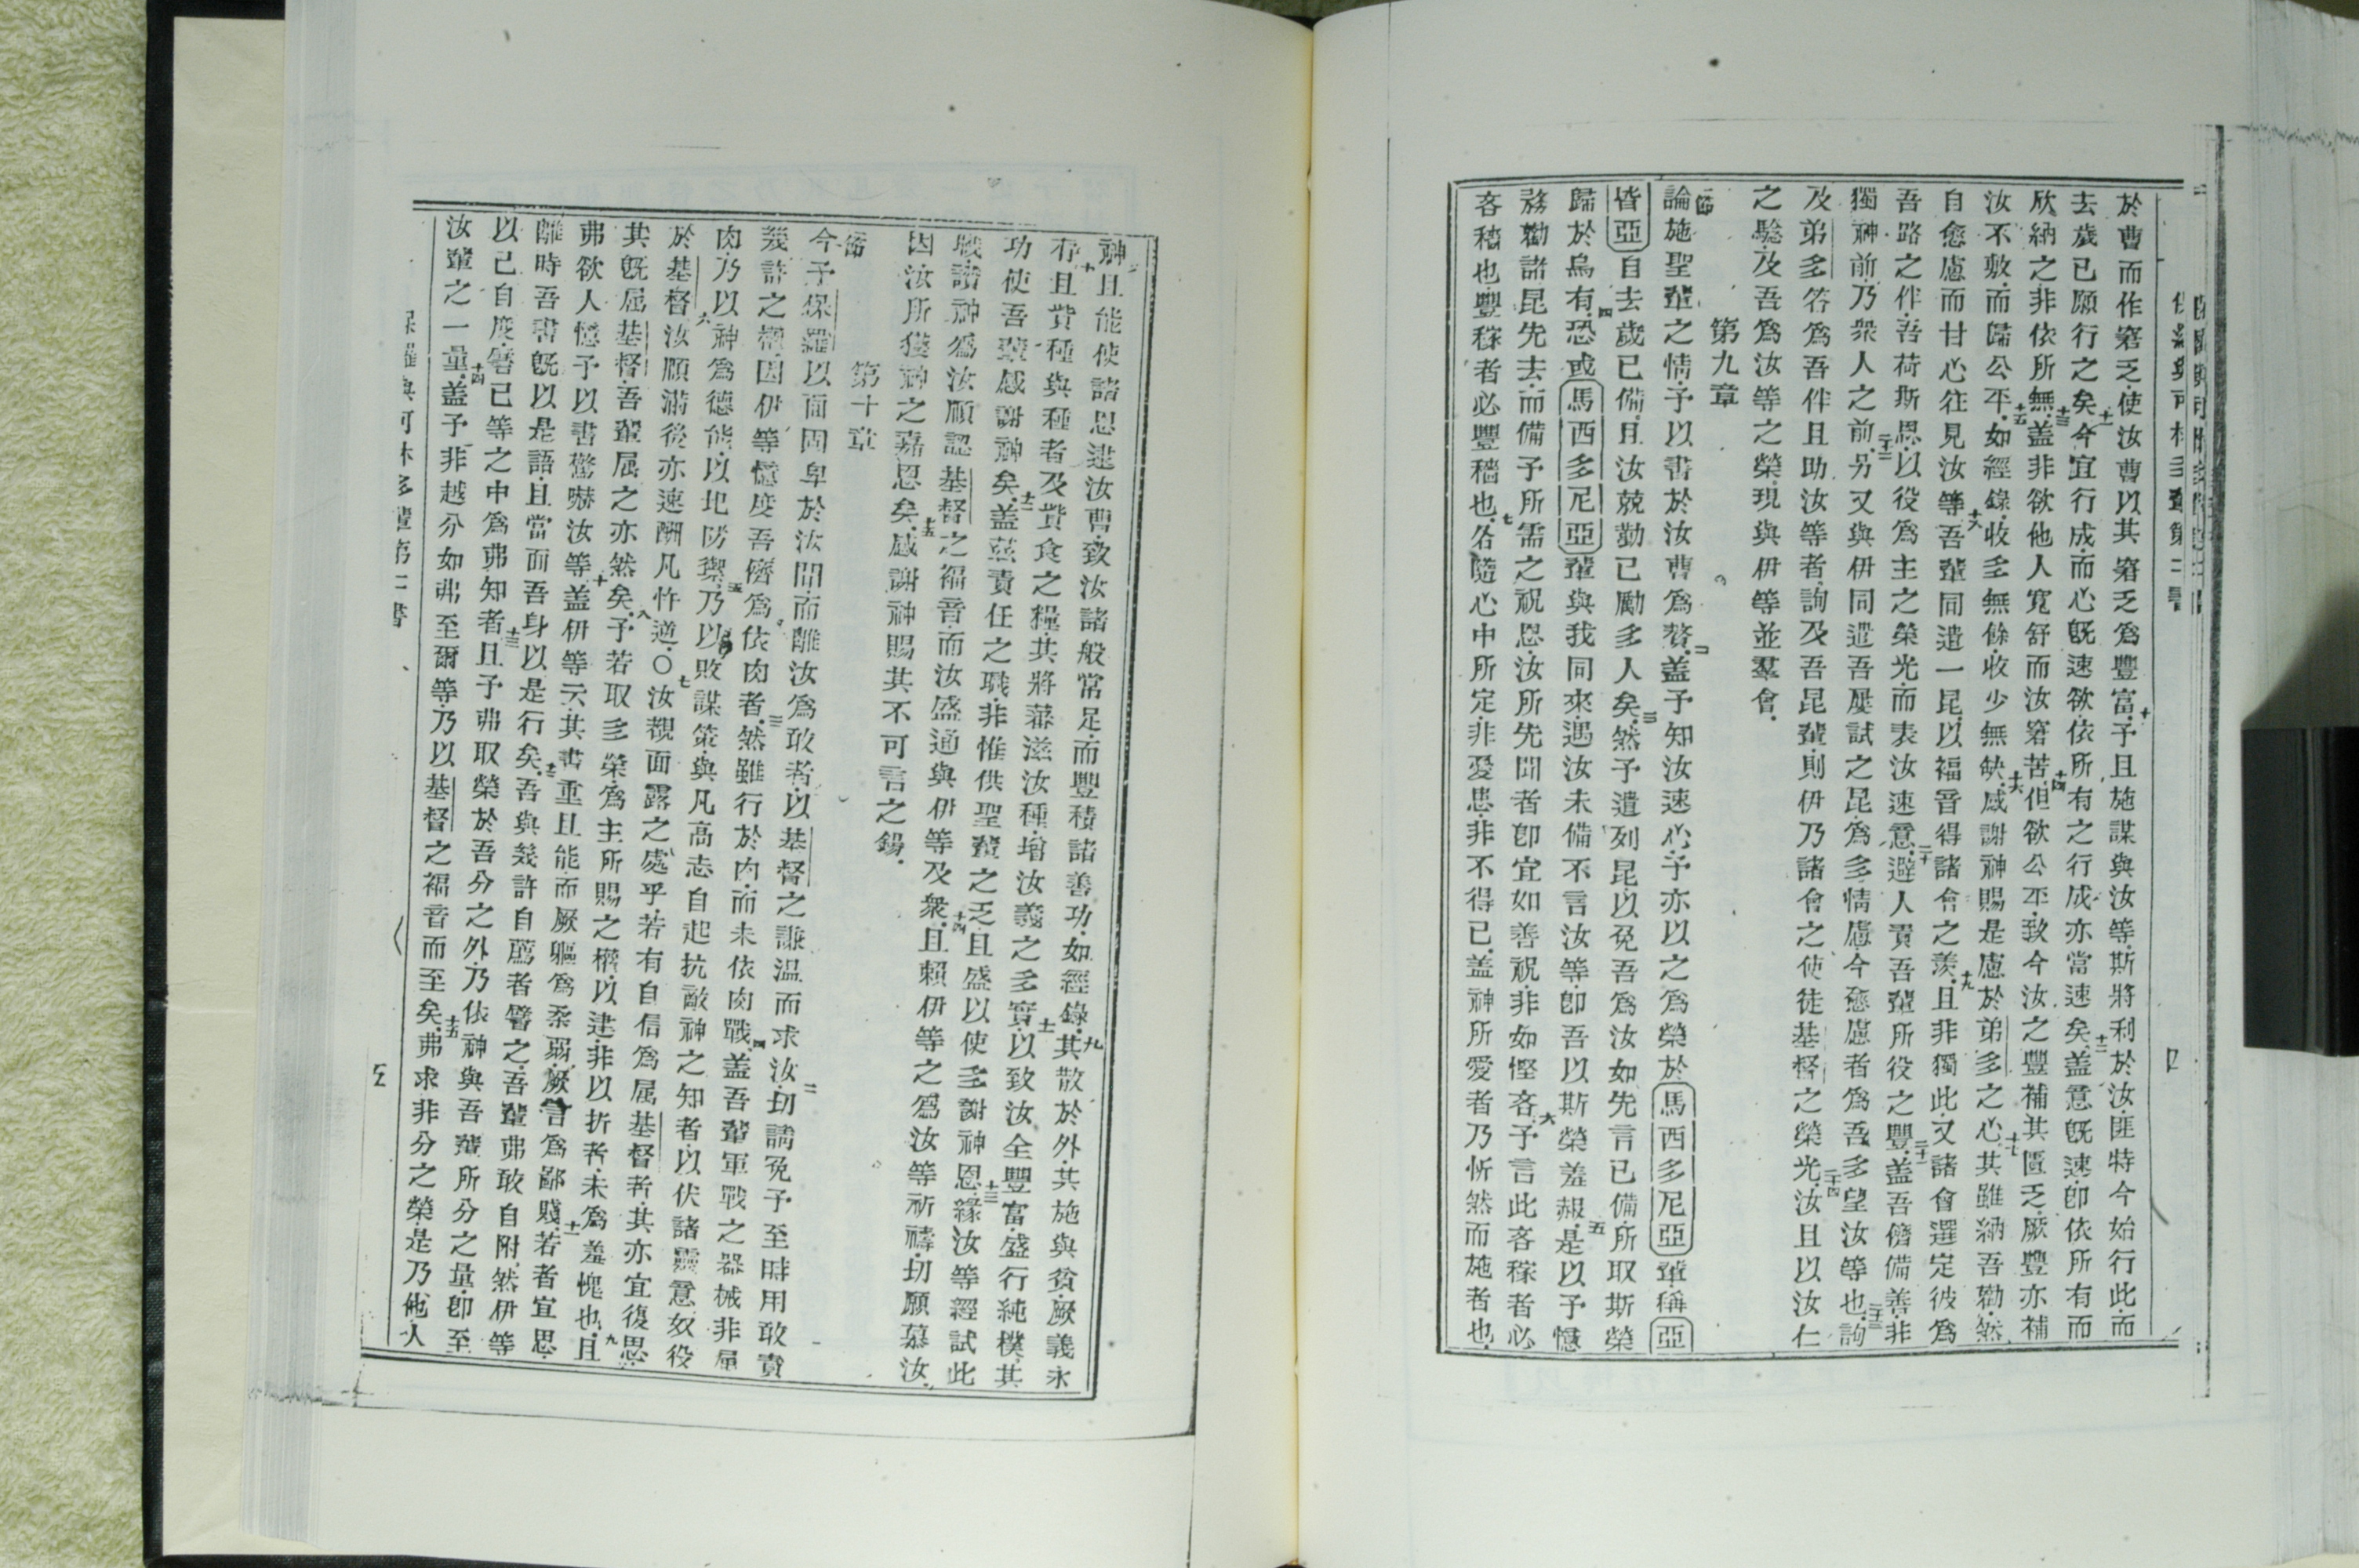 於曹而作窘乏使汝曹以其窘乏為豐富十予且施謀與汝等斯將利於汝匪特今始行此而
去歲已願行之矣十一今宜行成而心旣速欲依所有之行成亦當速矣十二盖意旣速卽依所有而
欣納之非依所無十三盖非欲他人寬舒而汝窘苦十四但欲公平致今汝之豐補其匱乏厥豐亦補
汝不敷而歸公平十五如經錄收多無餘收少無缺十六感謝神賜是慮於弟多之心十七其雖納吾勸然
自愈慮而甘心往見汝等十八吾輩同遣一昆以福音得諸會之羨十九且非獨此又諸會選定彼為
吾路之伴吾荷斯恩以役為主之榮光而表汝速意二十避人責吾輩所役之豐二十一盖吾儕備善非
獨神前乃衆人之前二十二另又與伊同遣吾屢試之昆為多情慮今愈慮者為吾多望汝等也二十三詢
及弟多答為吾伴且助汝等者詢及吾昆輩則伊乃諸會之使徒基督之榮光二十四汝且以汝仁
之驗及吾為汝等之榮現與伊等並羣會
第九章
一節論施聖輩之情予以書於汝曹為贅二盖予知汝速心予亦以之為榮於馬西多尼亞輩稱亞
皆亞自去歲已備且汝兢勤已勵多人矣三然予遣列昆以免吾為汝如先言已備所取斯榮
歸於烏有四恐或馬西多尼亞輩與我同來遇汝未備不言汝等卽吾以斯榮羞赧五是以予憶
務勸諸昆先去而備予所需之祝恩汝所先聞者卽宜如善祝非如慳吝六予言此吝稼者必
吝穡也豐稼者必豐穡也七各隨心中所定非憂患非不得已盖神所愛者乃忻然而施者也
八神且能使諸恩逮汝曹致汝諸般常足而豐積諸善功九如經錄其散於外其施與貧厥義永
存十且貲種與種者及貲食之糧其將蕃滋汝種增汝義之多實十一以致汝全豐富盛行純樸其
功使吾輩感謝神矣十二盖茲責任之職非惟供聖輩之乏且盛以使多謝神恩十三緣汝等經試此
職諸神為汝順認基督之福音而汝盛通與伊等及衆十四且賴伊等之為汝等祈禱切願慕汝
因汝所獲神之嘉恩矣十五感謝神賜其不可言之錫
第十章
一節今予保羅以面固卑於汝間而離汝為敢者以基督之謙溫而求汝二切請免予至時用敢責
幾許之輩因伊等憶度吾儕為依肉者三然雖行於肉而未依肉戰四盖吾輩軍戰之器械非屬
肉乃以神為德能以圯防禦五乃以敗謀策與凡高志自起抗敵神之知者以伏諸靈意奴役
於基督六汝順滿後亦速酬凡忤逆〇七汝觀面露之處乎若有自信為屬基督者其亦宜復思
其旣屬基督吾輩屬之亦然矣八予若取多榮為主所賜之權以建非以折者未為羞愧也九且
弗欲人憶予以書驚嚇汝等十盖伊等云其書重且能而厥軀為柔弱厥言為鄙賤十一若者宜思
離時吾書旣以是語且當面吾身以是行矣十二吾與幾許自薦者譬之吾輩弗敢自附然伊等
以己自度譬己等之中為弗知者十三且予弗取榮於吾分之外乃依神與吾輩所分之量卽至
汝輩之一量十四盖予非越分如弗至爾等乃以基督之福音而至矣十五弗求非分之榮是乃他人
保羅與可林多輩第二書
五